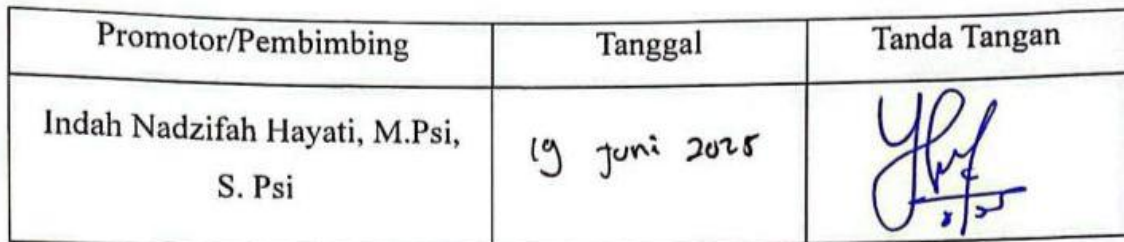 Promotor/Pembimbing Tanggal Tanda Tangan
Indah Nadzifah Hayati, M.Psi,
S. Psi
19 Juni 2025